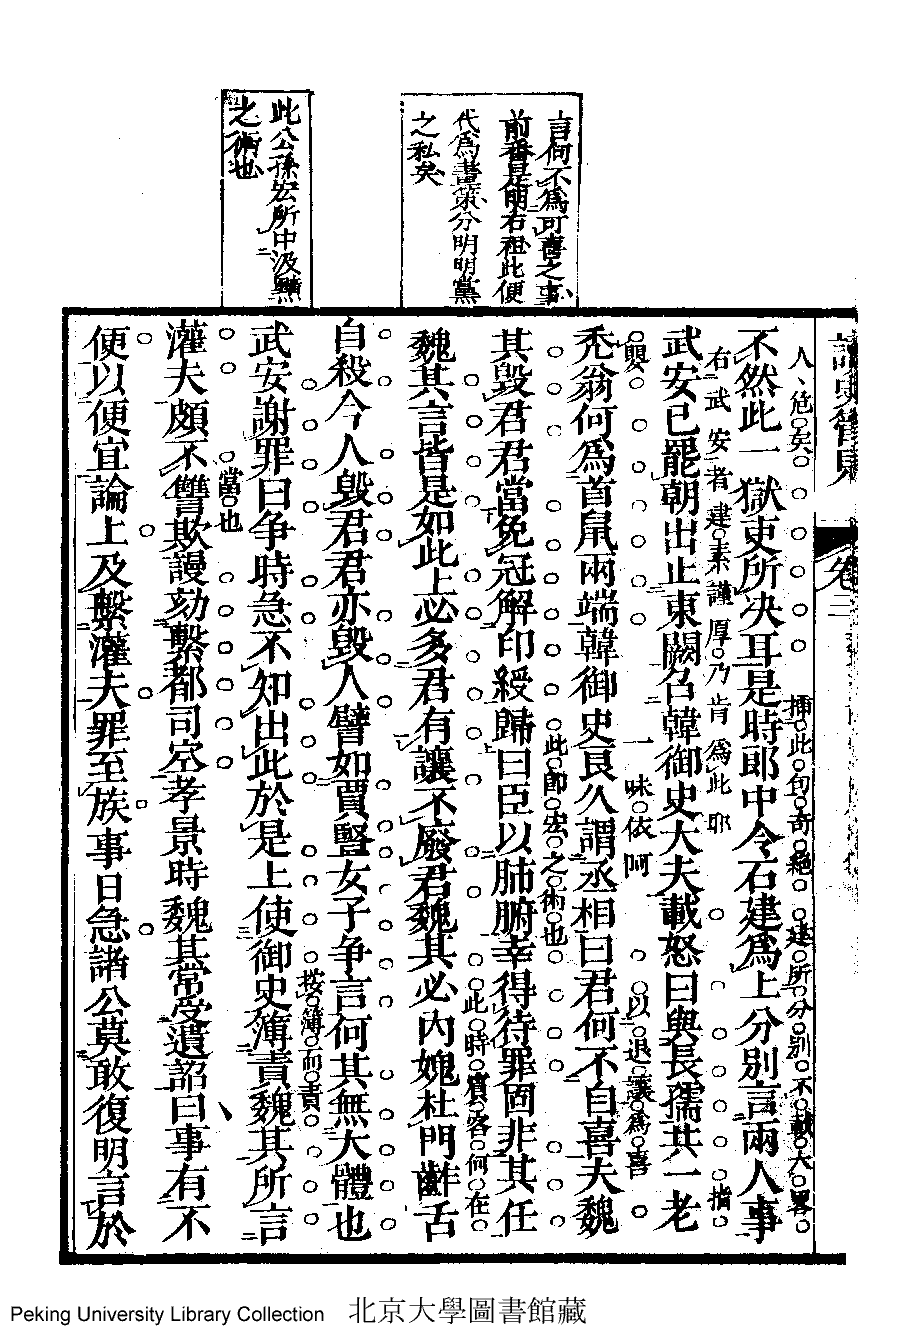 言何不爲可喜之事
前番是明右袒此便
代爲畫策分明朋黨
之私矣
此公孫宏所中汲黯
之術也
卷三
人危矣
不然此一獄吏所決耳是時郎中令石建爲上分別言兩人事
插此句奇絕 建所分別不載大畧
右武安者建素謹厚乃肯爲此耶
武安已罷朝出止東闕召韓御史大夫載怒曰與長孺共一老
指
嬰 一味依阿 以退讓爲喜
禿翁何爲首鼠兩端韓御史良久謂丞相曰君何不自喜夫魏
此卽宏之術也
其毀君君當免冠解印綬歸曰臣以肺腑幸得待罪固非其任
此時賓客何在
魏其言皆是如此上必多君有讓不廢君魏其必內媿杜門齚舌
自殺今人毀君君亦毀人譬如賈豎女子爭言何其無大體也
按簿而責
武安謝罪曰爭時急不知出此於是上使御史簿責魏其所言
當也
灌夫頗不讐欺謾劾繫都司空孝景時魏其常受遺詔曰事有不
便以便宜論上及繫灌夫罪至族事日急諸公莫敢復明言於
Peking University Library Collection 北京大學圖書館藏